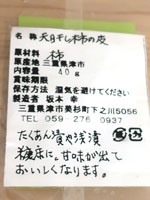 名称 天日干し柿の皮
原材料 柿
原産地 三重県津市
内容量 40g
賞味期限
保存方法 湿気を避けてください
製造者 坂本 幸
三重県津市美杉町下之川5056
TEL 059 276 0937
たくあん漬や浅漬
糠床に。甘味が出て
おいしくなります。